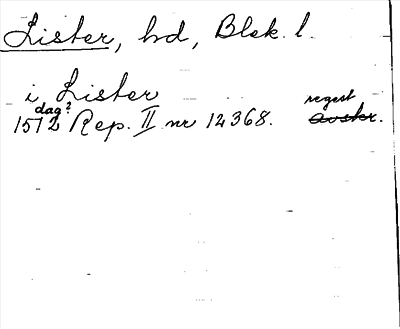 Lister, hd, Blek. l.
i Lister
dag? regest
1512 Rep. II nr 12368. avskr.